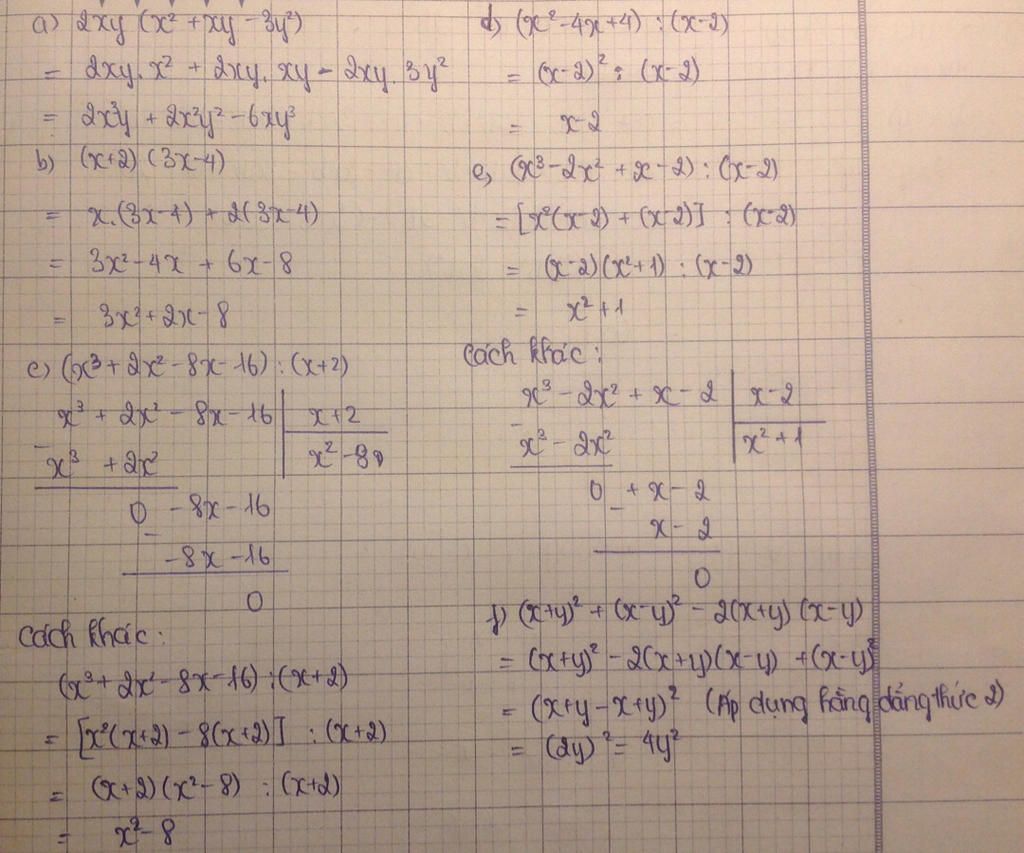 a) 2xy (x² + xy - 3y²)
= 2xy.x² + 2xy.xy - 2xy.3y²
= 2x³y + 2x²y² - 6xy³
b) (x+2)(3x-4)
= x.(3x-4) + 2(3x-4)
= 3x² - 4x + 6x - 8
= 3x² + 2x - 8
c) (x³ + 2x² - 8x - 16) : (x+2)
x³ + 2x² - 8x - 16 | x+2
- x³ + 2x² | x² - 8
0 - 8x - 16
- -8x - 16
0
Cách khác:
(x³ + 2x² - 8x - 16) : (x+2)
= [x²(x+2) - 8(x+2)] : (x+2)
= (x+2)(x² - 8) : (x+2)
= x² - 8
d) (x² - 4x + 4) : (x-2)
= (x-2)² : (x-2)
= x-2
e) (x³ - 2x² + x - 2) : (x-2)
= [x²(x-2) + (x-2)] : (x-2)
= (x-2)(x²+1) : (x-2)
= x² + 1
Cách khác:
x³ - 2x² + x - 2 | x-2
- x³ - 2x² | x² + 1
0 + x - 2
- x - 2
0
f) (x+y)² + (x-y)² - 2(x+y)(x-y)
= (x+y)² - 2(x+y)(x-y) + (x-y)²
= (x+y-x+y)² (Áp dụng hằng đẳng thức 2)
= (2y)² = 4y²